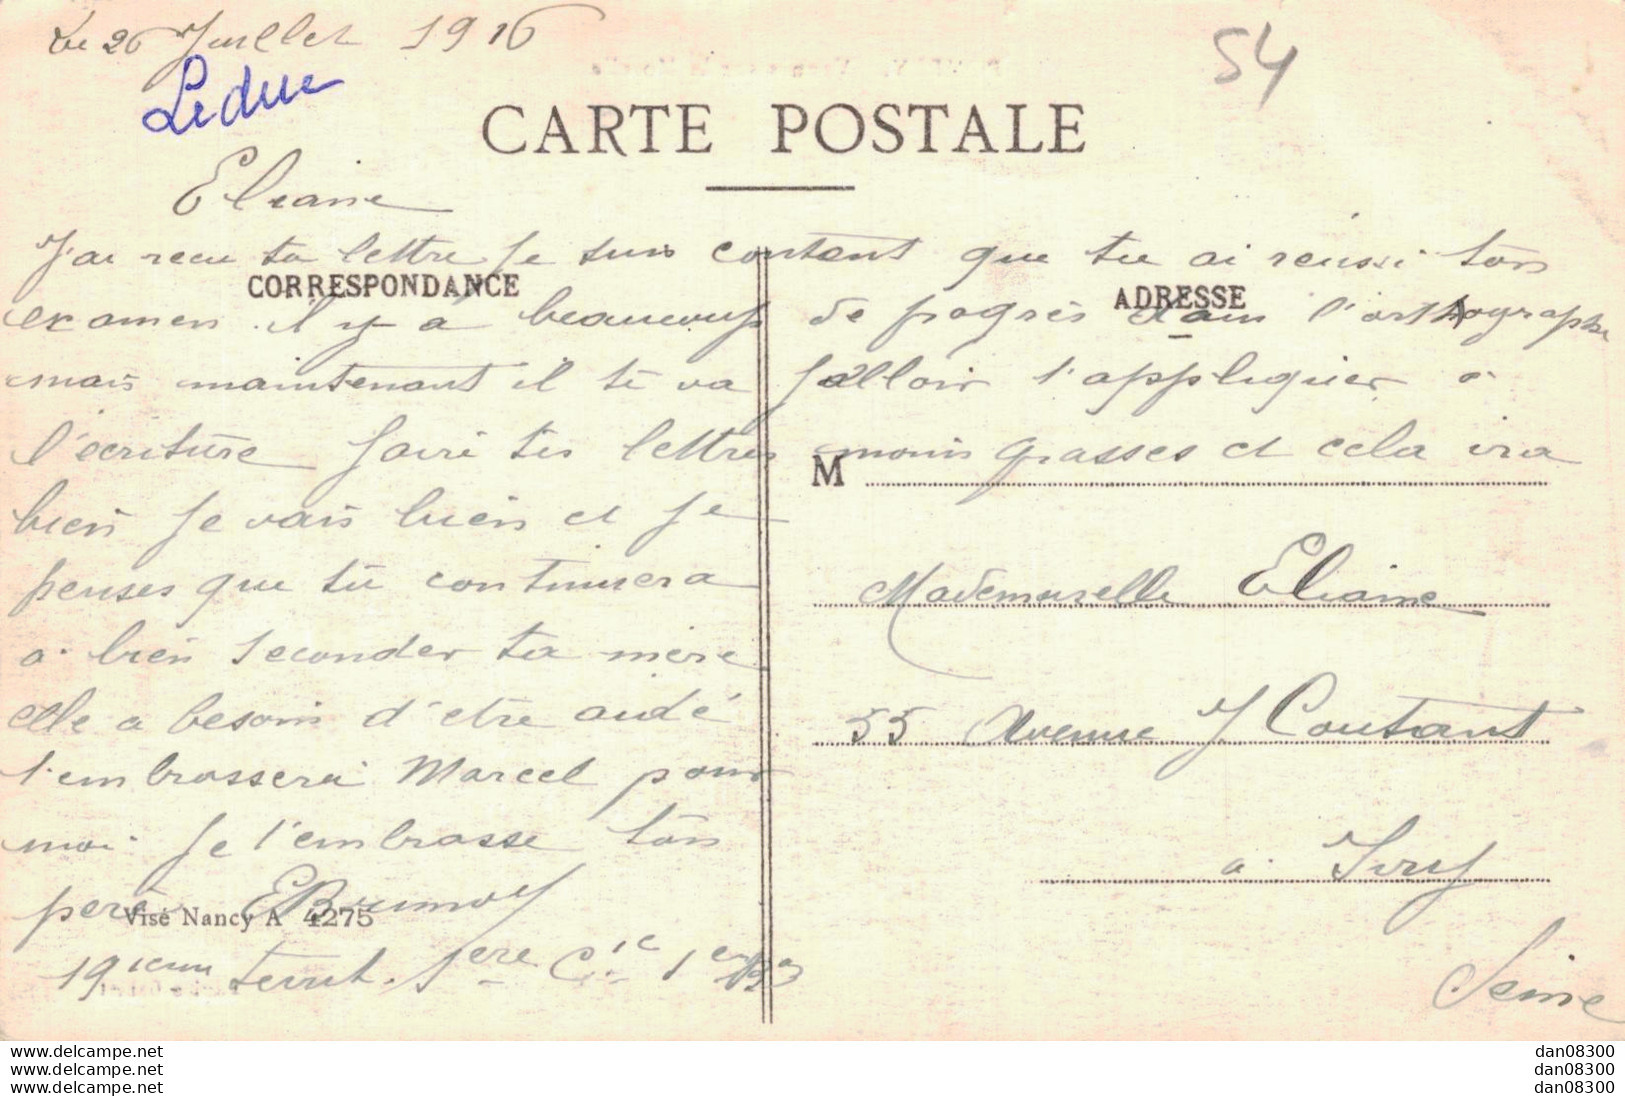 Le 26 Juillet 1916
54
Leduc
CARTE POSTALE
Eliane
J'ai recu ta lettre je suis content que tu ai réussi ton
CORRESPONDANCE
ADRESSE
examen il y a beaucoup de progrès dans l'orthographe
mais maintenant il te va falloir t'appliquer a
l'écriture faire tes lettres moins grasses et cela ira
M
bien je vais bien et je
penses que tu continuera
a bien seconder ta mere
elle a besoin d'etre aidé
t'embrassera Marcel pour
moi je t'embrasse ton
père EBrunoy
Visé Nancy A 4275
19ieme territ. 1ere Cie 1er
Mademoiselle Eliane
55 Avenue J Coutant
a Ivry
Seine
www.delcampe.net
www.delcampe.net
www.delcampe.net
dan08300
dan08300
dan08300